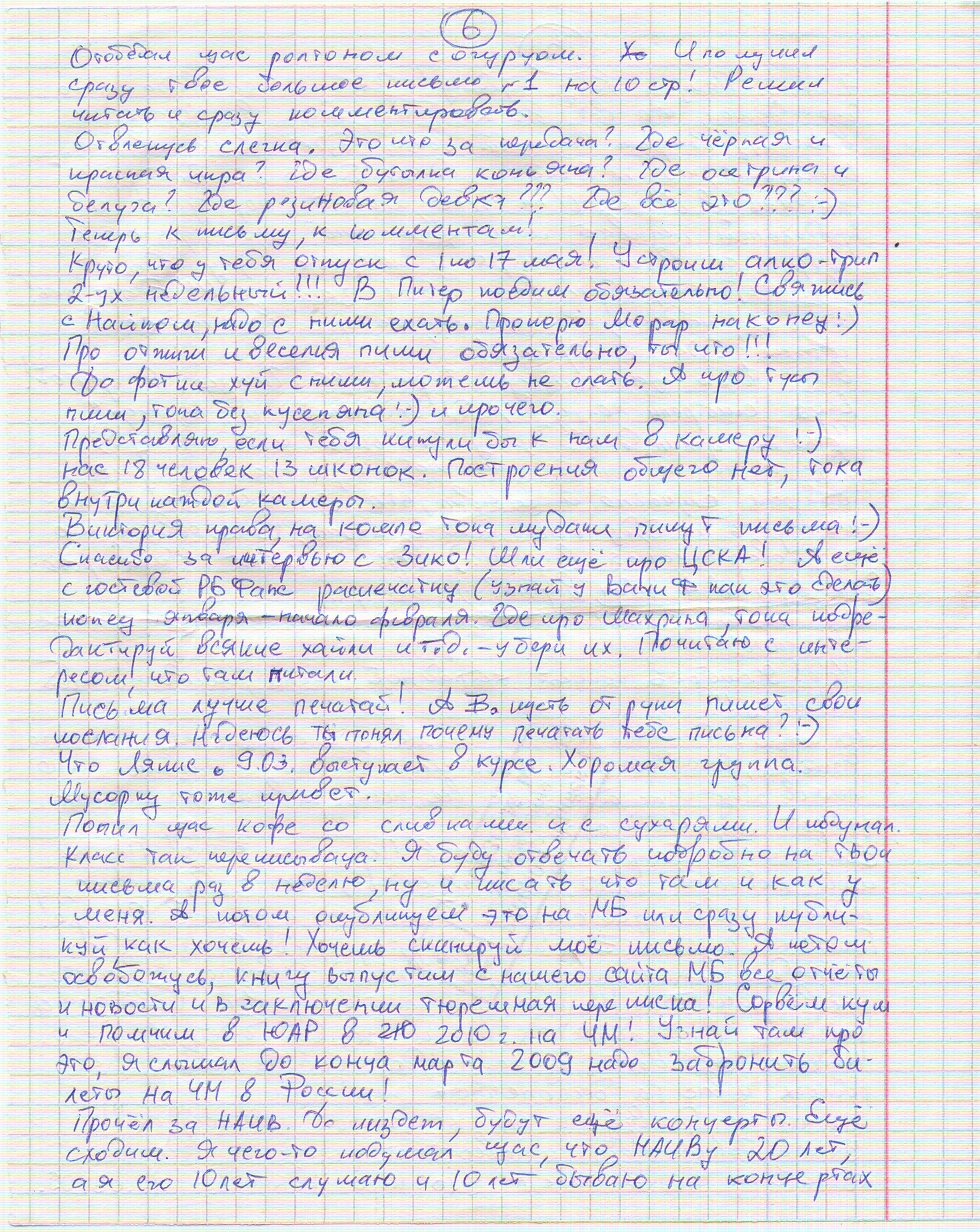 6
Отобедал щас ролтоном с огурцом. И получил
сразу твоё большое письмо №1 на 10 стр! Решил
читать и сразу комментировать.
Отвлекусь слегка. Это что за передача? Где чёрная и
красная икра? Где бутылка коньяка? Где осетрина и
белуга? Где резиновая девка??? Где всё это??? :-)
Теперь к письму, к комментам!
Круто, что у тебя отпуск с 1 по 17 мая! Устроим алко-трип
2-ух недельный!!! В Питер поедим обязательно! Свяжись
с Найком, надо с ними ехать. Проперю Морар наконец!:)
Про отжиги и веселья пиши обязательно, ты что!!!
Да фотки хуй с ними, можешь не слать. А про тусы
пиши, тока без кусепяна!:-) и прочего.
Представляю, если тебя кинули бы к нам в камеру!:-)
нас 18 человек 13 шконок. Построения общего нет, тока
внутри каждой камеры.
Виктория права, на компе тока мудаки пишут письма!:-)
Спасибо за интервью с Зико! Шли ещё про ЦСКА! А ещё
с гостевой РБ Фапс распечатку (узнай у Вани Ф как это сделать)
конец января - начало февраля. Где про Махрина, тока подре-
дактируй всякие хайли и т.д. - убери их. Почитаю с инте-
ресом, что там питали.
Письма лучше печатай! А В. пусть от руки пишет свои
послания. Надеюсь ты понял почему печатать тебе письма?!:-)
Что Ляпис 9.03. выступает в курсе. Хорошая группа.
Мусорку тоже привет.
Попил щас кофе со сливками и с сухарями. И подумал.
Класс так переписываца. Я буду отвечать подробно на твои
письма раз в неделю, ну и писать что там и как у
меня. А потом опубликуем это на МБ или сразу публи-
куй, как хочешь! Хочешь сканируй моё письмо. А потом
освобожусь, книгу выпустим с нашего сайта МБ все отчёты
и новости и в заключении тюремная переписка! Сорвём куш
и помчим в ЮАР в 2010 г. на ЧМ! Узнай там про
это, я слышал до конца марта 2009 надо забронить би-
леты на ЧМ в России!
Прочёл за НАИВ. Да пиздет, будут ещё концерты. Ещё
сходим. Я чего-то подумал щас, что НАИВу 20 лет,
а я его 10 лет слушаю и 10 лет бываю на концертах